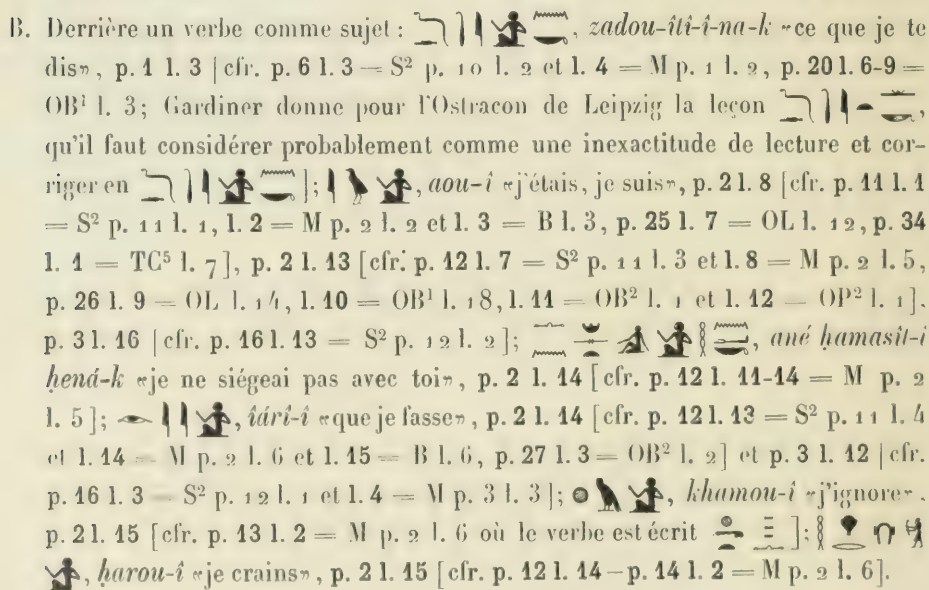 B. Derrière un verbe comme sujet : , zadou-îti-î-na-k «ce que je te
dis», p. 1 l. 3 [cfr. p. 6 l. 3 — S² p. 10 l. 2 et l. 4 = M p. 1 l. 2, p. 20 l. 6-9 =
OB¹ l. 3; Gardiner donne pour l'Ostracon de Leipzig la leçon ,
qu'il faut considérer probablement comme une inexactitude de lecture et cor-
riger en ]; , aou-î «j'étais, je suis», p. 2 l. 8 [cfr. p. 11 l. 1
= S² p. 11 l. 1, l. 2 = M p. 2 l. 2 et l. 3 = B l. 3, p. 25 l. 7 = OL l. 12, p. 34
l. 1 = TC⁵ l. 7], p. 2 l. 13 [cfr. p. 12 l. 7 = S² p. 11 l. 3 et l. 8 = M p. 2 l. 5,
p. 26 l. 9 — OL l. 14, l. 10 = OB¹ l. 18, l. 11 = OB² l. 1 et l. 12 — OP² l. 1],
p. 3 l. 16 [cfr. p. 16 l. 13 = S² p. 12 l. 2]; , ané ḥamasît-i
ḥená-k «je ne siégeai pas avec toi», p. 2 l. 14 [cfr. p. 12 l. 11-14 = M p. 2
l. 5]; , îárî-î «que je fasse», p. 2 l. 14 [cfr. p. 12 l. 13 = S² p. 11 l. 4
et l. 14 — M p. 2 l. 6 et l. 15 = B l. 6, p. 27 l. 3 = OB² l. 2] et p. 3 l. 12 [cfr.
p. 16 l. 3 — S² p. 12 l. 1 et l. 4 = M p. 3 l. 3]; , khamou-î «j'ignore»,
p. 2 l. 15 [cfr. p. 13 l. 2 = M p. 2 l. 6 où le verbe est écrit ];
, ḥarou-î «je crains», p. 2 l. 15 [cfr. p. 12 l. 14 — p. 14 l. 2 = M p. 2 l. 6].